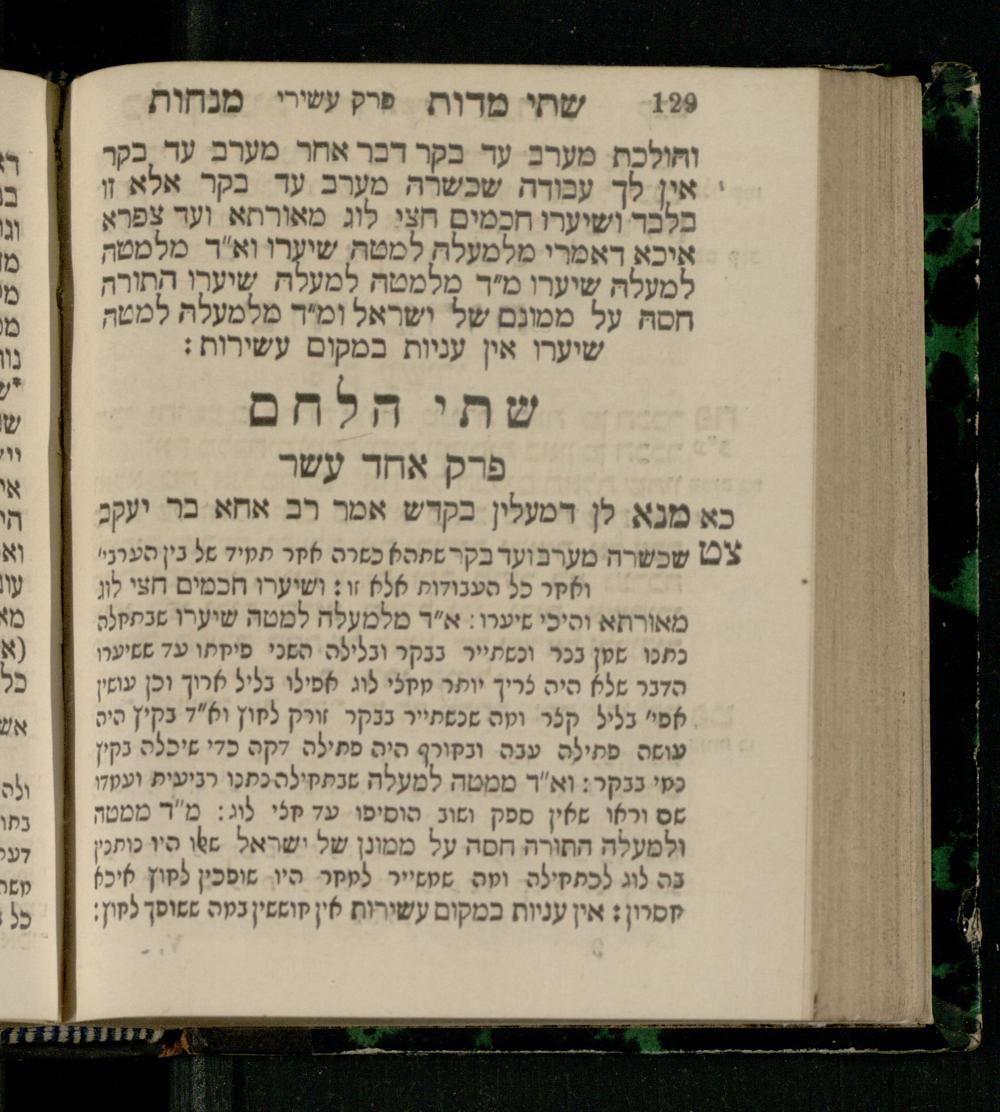 129 שתי מדות פרק עשירי מנחות
והולכת מערב עד בקר דבר אחר מערב עד בקר
אין לך עבודה שכשרה מערב עד בקר אלא זו
בלבד ושיערו חכמים חצי לוג מאורתא ועד צפרא
איכא דאמרי מלמעלה למטה שיערו וא״ד מלמטה
למעלה שיערו מ״ד מלמטה למעלה שיערו התורה
חסה על ממונם של ישראל ומ״ד מלמעלה למטה
שיערו אין עניות במקום עשירות :
שתי הלחם
פרק אחד עשר
כא מנא לן דמעלין בקדש אמר רב אחא בר יעקב
צט שכשרה מערב ועד בקר שתהא כשרה אחר תמיד של בין הערבי׳
ואחר כל העבודות אלא זו : ושיערו חכמים חצי לוג
מאורתא והיכי שיערו : א״ד מלמעלה למטה שיערו שבתחלה
נתנו שמן בנר וכשתייר בבקר ובלילה השני פיחתו עד ששיערו
הדבר שלא היה צריך יותר מחצי לוג אפילו בליל ארוך וכן עושין
אפי׳ בליל קצר ומה שכשתייר בבקר זורק לחוץ וא״ד בקיץ היה
עושה פתילה עבה ובחורף היה פתילה דקה כדי שיכלה בקיץ
כמי בבקר : וא״ד ממטה למעלה שבתחילה נתנו רביעית ועמדו
שם וראו שאין ספק ושוב הוסיפו עד חצי לוג : מ״ד ממטה
ולמעלה התורה חסה על ממונן של ישראל שאו היו נותנין
בה לוג לכתחילה ומה שמשייר למחר היו שופכין לחוץ איכא
חסרון : אין עניות במקום עשירות אין חוששין במה ששופך לחוץ :